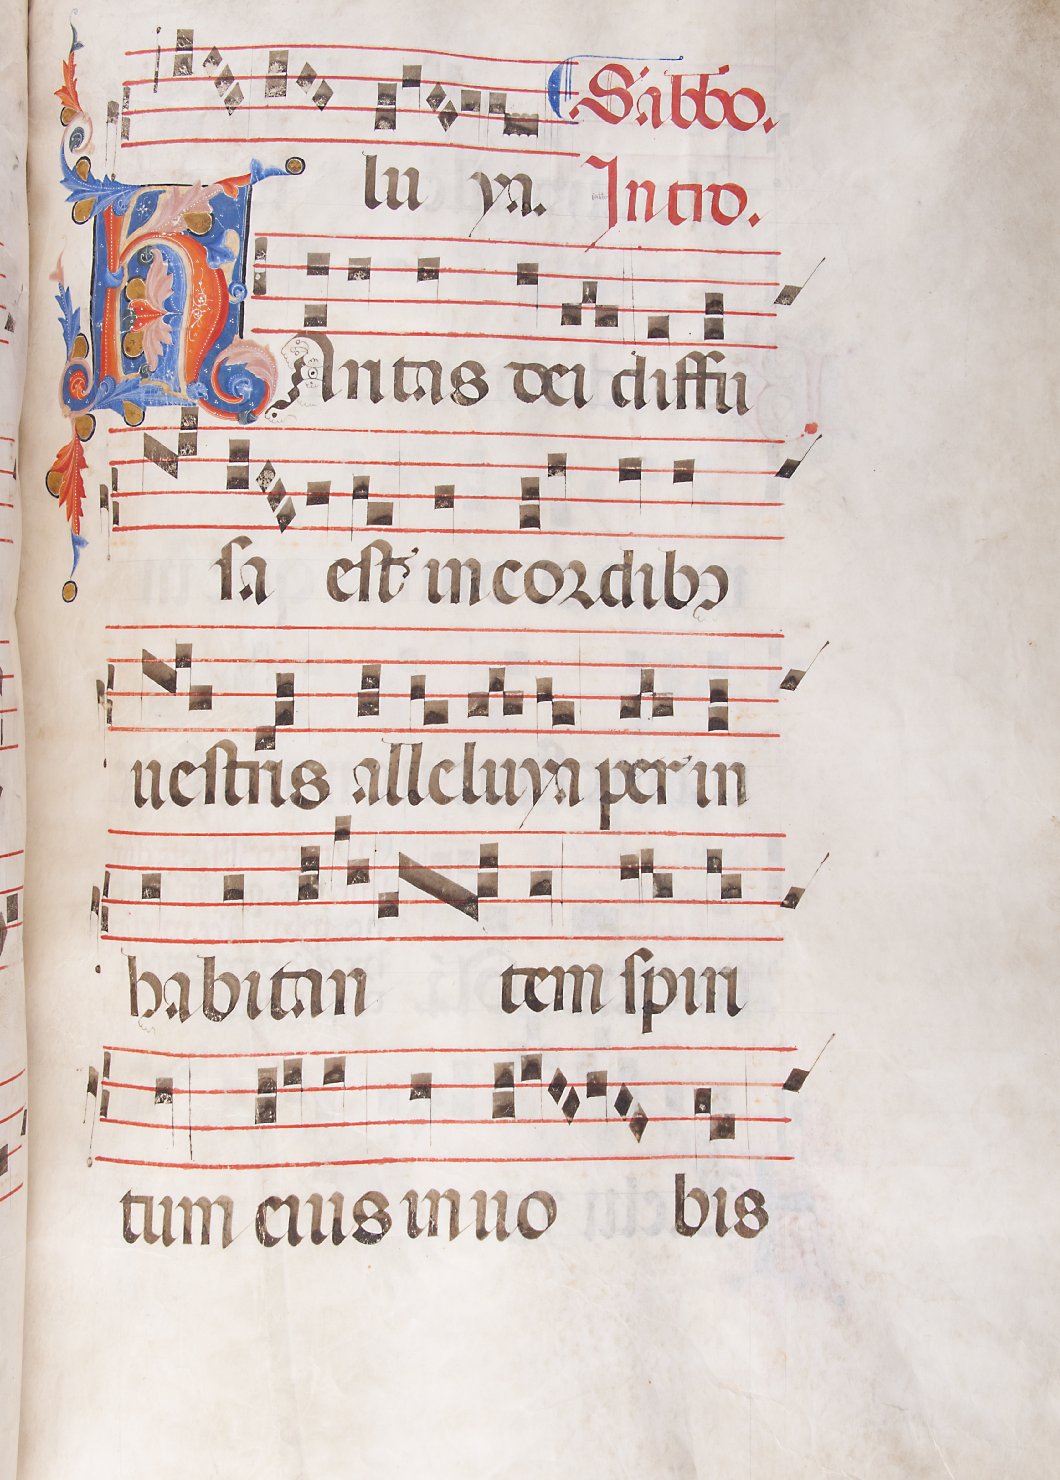 ¶ Sabbo.
lu ya. Intro.
hAritas dei diffu
sa est in cordibꝫ
uestris alleluya per in
habitan tem spiri
tum eius in uo bis